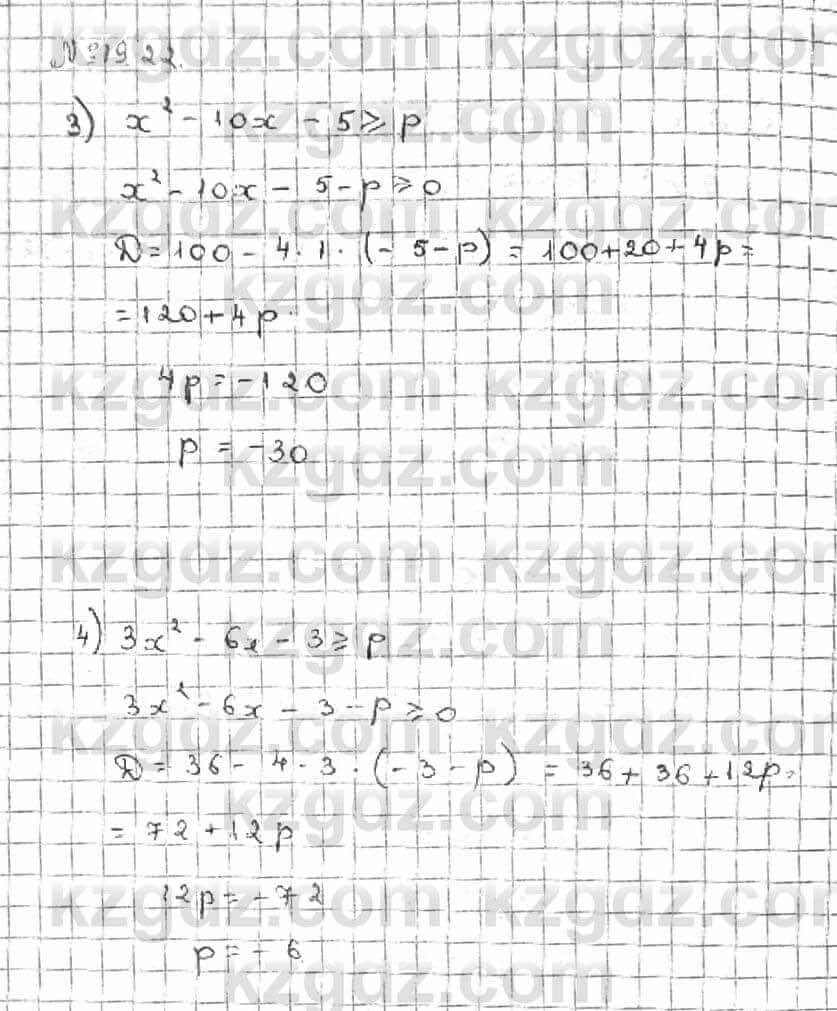 № 19.22.
3) x² - 10x - 5 ≥ p
x² - 10x - 5 - p ≥ 0
D = 100 - 4 · 1 · (- 5 - p) = 100 + 20 + 4p =
= 120 + 4p
4p = -120
p = -30
4) 3x² - 6x - 3 ≥ p
3x² - 6x - 3 - p ≥ 0
D = 36 - 4 · 3 · (- 3 - p) = 36 + 36 + 12p =
= 72 + 12p
12p = - 72
p = - 6
kzgdz.com